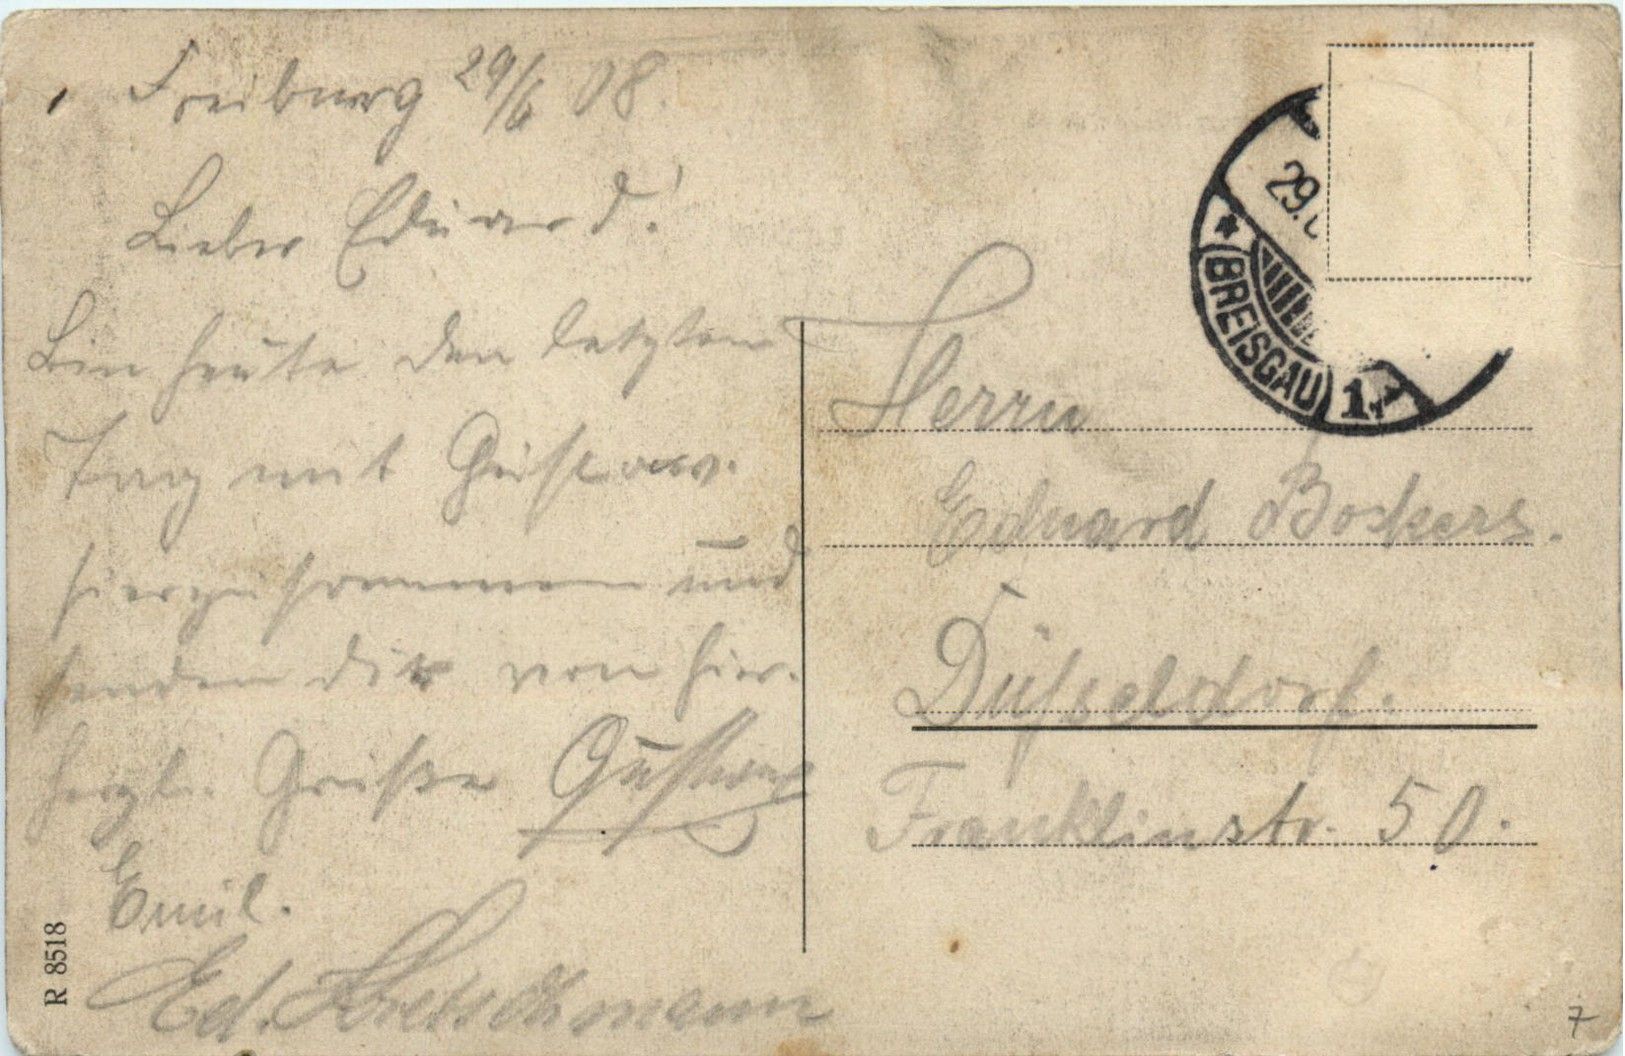 Freiburg 29/6 08.
Lieber Eduard!
Bin heute den letzten
Tag mit Gustav
hier zusammen und
senden dir von hier
herzl. Grüße Gustav
Emil.
Ed. Kretschmann
R 8518
29.
* BREISGAU 1
Herrn
Eduard Bockers.
Düsseldorf.
Franklinstr. 50.
7